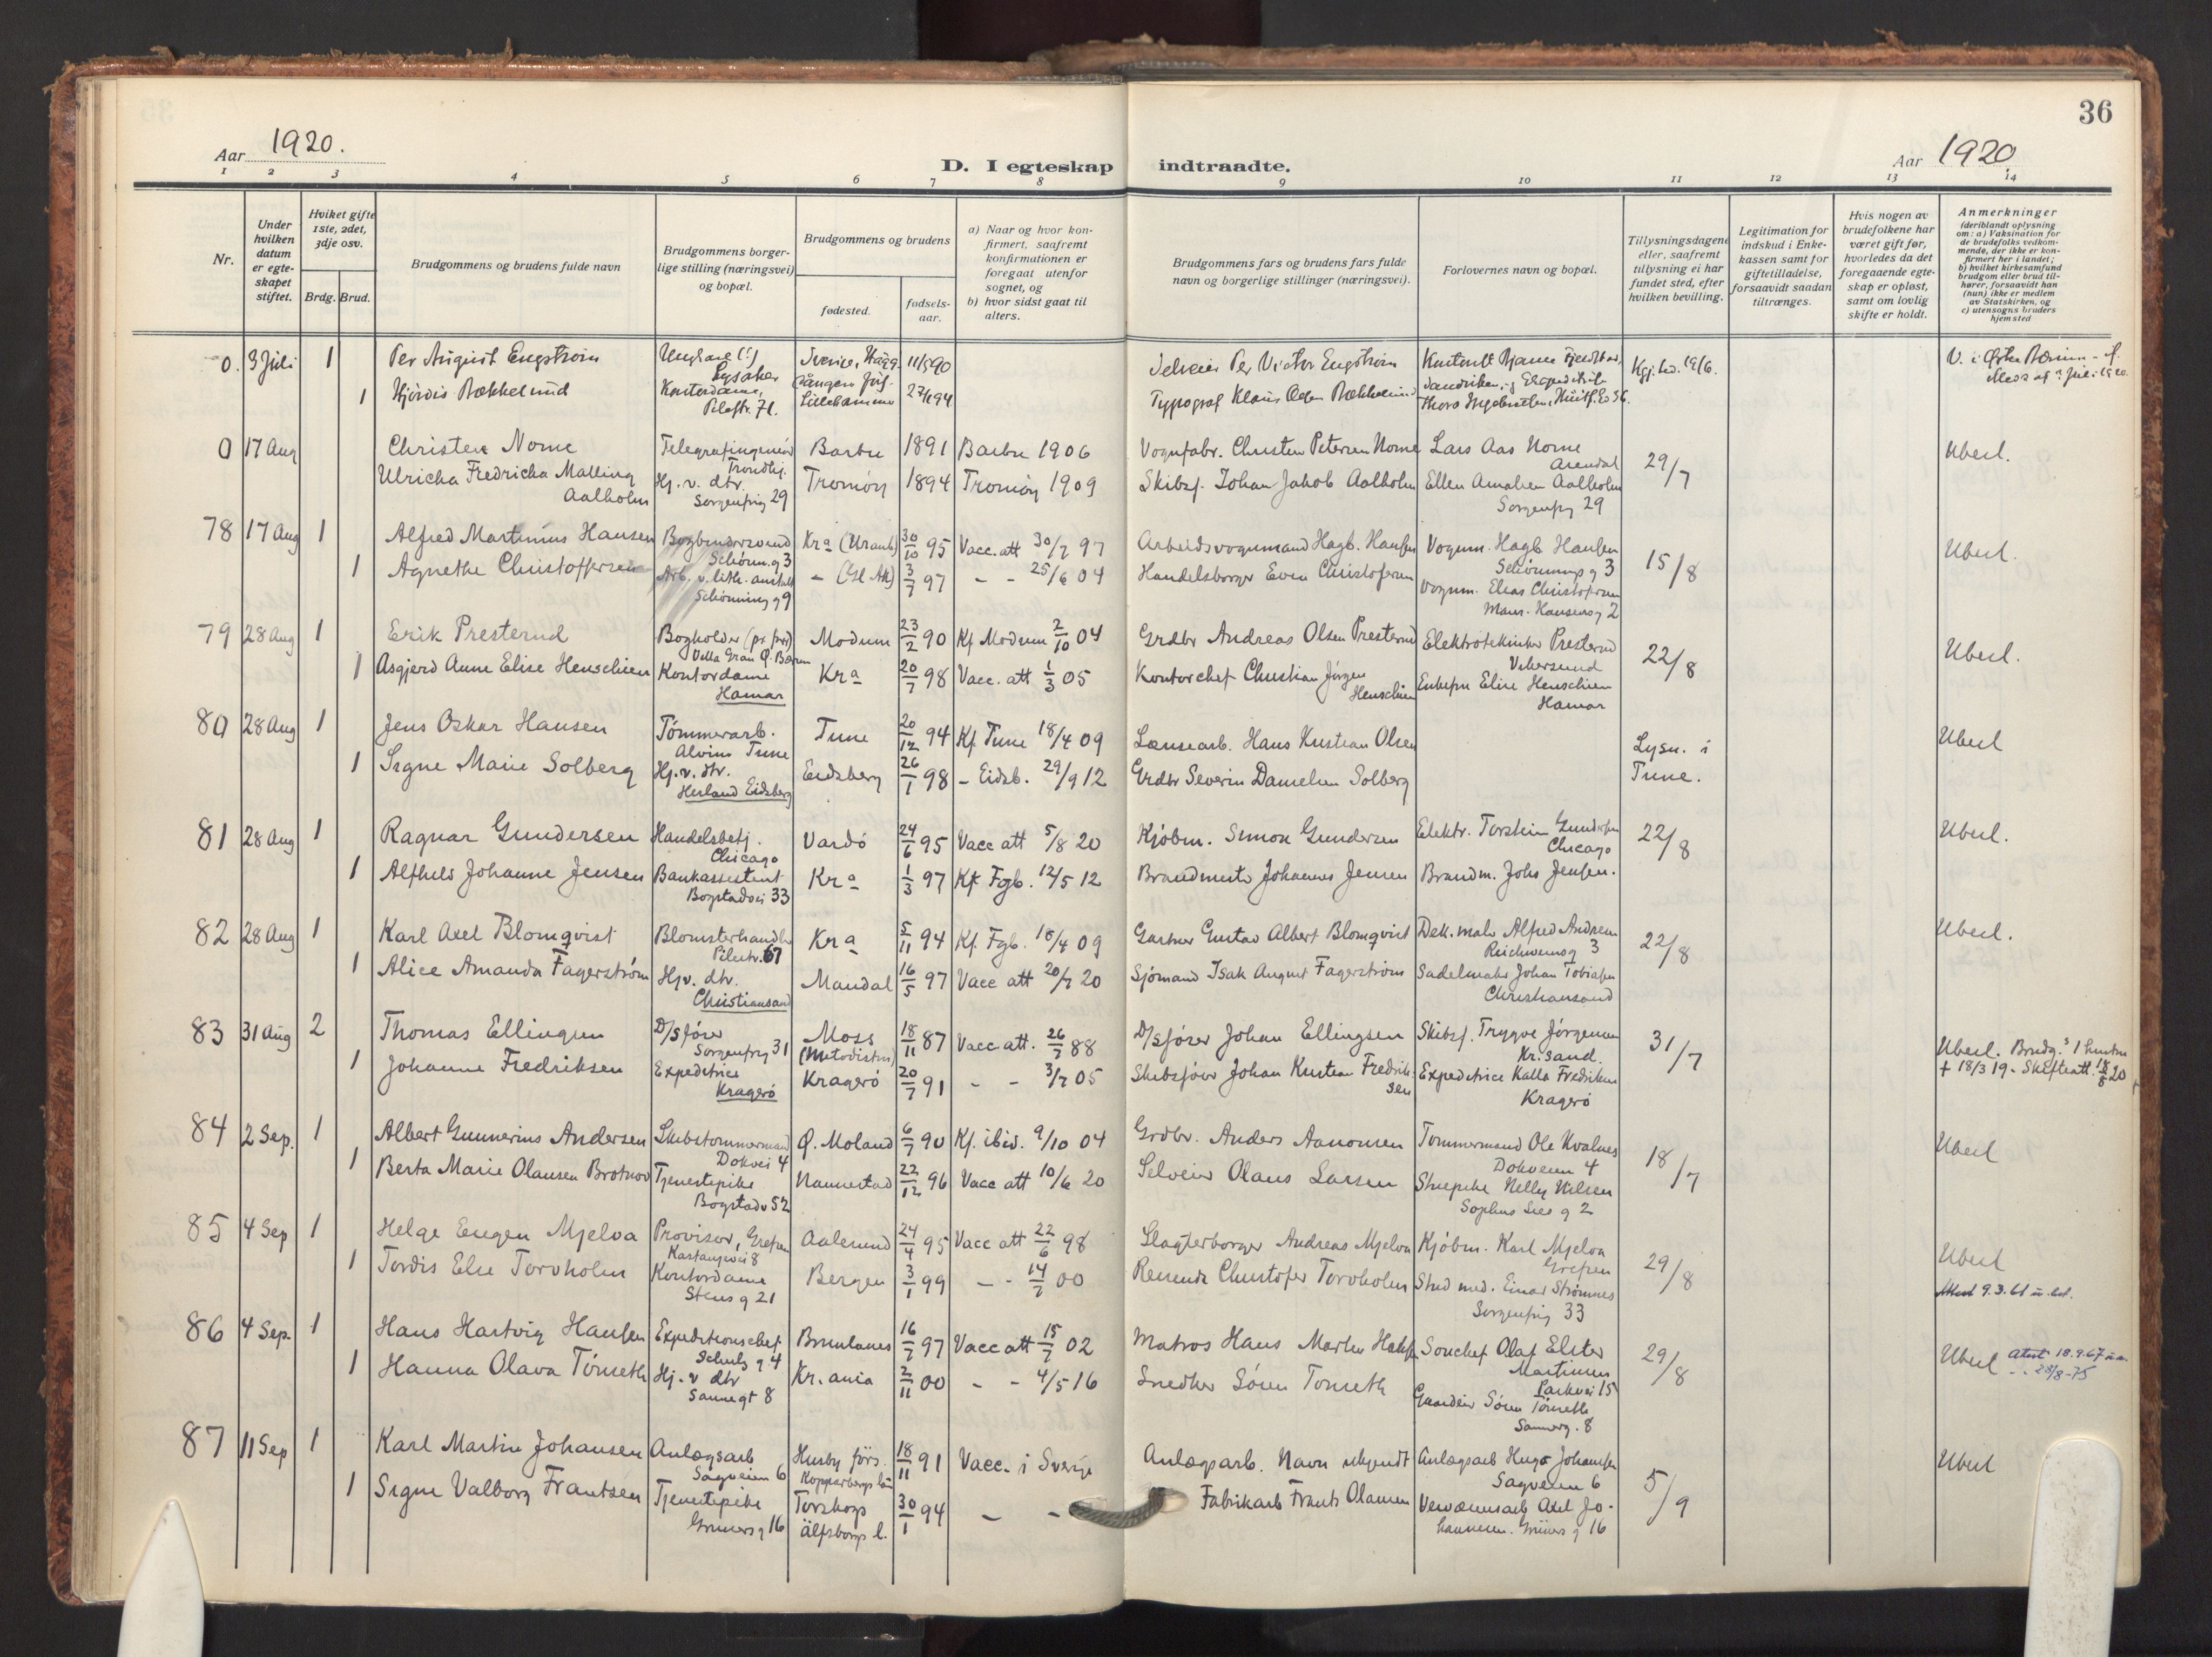 36
Aar 1920.
D. I egteskap indtraadte.
Aar 1920
1 2 3 4 5 6 7 8 9 10 11 12 13 14
Nr.
Under hvilken datum er egteskapet stiftet.
Hviket gifte 1ste, 2det, 3dje osv.
Brdg. Brud.
Brudgommens og brudens fulde navn
Brudgommens borgerlige stilling (næringsvei) og bopæl.
Brudgommens og brudens
fødested.
fødselsaar.
a) Naar og hvor konfirmert, saafremt konfirmationen er foregaat utenfor sognet, og
b) hvor sidst gaat til alters.
Brudgommens fars og brudens fars fulde navn og borgerlige stillinger (næringsvei).
Forlovernes navn og bopæl.
Tillysningsdagene eller, saafremt tillysning ei har fundet sted, efter hvilken bevilling.
Legitimation for indskud i Enkekassen samt for giftetilladelse, forsaavidt saadan tiltrænges.
Hvis nogen av brudefolkene har været gift før, hvorledes da det foregaaende egteskap er opløst, samt om lovlig skifte er holdt.
Anmerkninger (deriblandt oplysning om: a) Vaksination for de brudefolks vedkommende, der ikke er konfirmert her i landet; b) hvilket kirkesamfund brudgom eller brud tilhører, forsaavidt han (hun) ikke er medlem av Statskirken, og c) utensogns bruders hjemsted
0. 3 Juli 1 Per August Engstrøm
Lysaker
11/5 90
Per Victor Engstrøm
19/6.
1 Hjørdis Bækkelund Kontordame, Pilestr. 71. Lillehammer 27/1 94
Typograf Klaus Olsen Bækkelund
0 17 Aug Christen Nome Telegrafingeniør Trondhj. Barbu 1891 Barbu 1906
Vognfabr. Christen Petersen Nome Lars Aas Nome Arendal 29/7 Ubesl.
Ulricha Fredricha Malling Aalholm Hj. v. dtr. Sorgenfrig 29 Tromøy 1894 Tromøy 1909
Skibsf. Johan Jakob Aalholm Ellen Amalien Aalholm Sorgenfrg 29
78 17 Aug 1 Alfred Martinius Hansen Bogbindersvend Schønn.g 3 Kra (Uranb) 30/10 95 Vacc. att 30/7 97
Arbeidsvognmand Hagb. Hansen Vognm. Hagb Hansen Schønnings g 3 15/8 Ubesl.
1 Agnethe Christoffersen Arb. v. lith. anstalt Schønning g 9 – (Gl. Ak) 3/7 97 – – 25/6 04
Handelsborger Even Christofersen Vognm. Elias Christofersen Maur. Hansensg 2
79 28 Aug 1 Erik Presterud Bogholder Villa Gran Ø. Bærum Modum 23/2 90 Kf Modum 2/10 04
Grdbr Andreas Olsen Presterud Elektrotekniker Presterud Vikersund 22/8 Ubesl.
1 Asgjerd Anne Elise Henschien Kontordame Hamar Kra 20/7 98 Vacc. att 1/3 05
Kontorchef Christian Jørgen Henschien Enkefru Elise Henschien Hamar
80 28 Aug 1 Jens Oskar Hansen Tømmerarb. Alvim Tune Tune 20/12 94 Kf Tune 18/4 09
Lænsearb. Hans Kristian Olsen Lysn. i Tune. Ubesl
1 Signe Marie Solberg Hj. v. dtr. Herland Eidsberg Eidsberg 26/1 98 – Eidsb. 29/9 12
Grdbr Severin Danielsen Solberg
81 28 Aug 1 Ragnar Gundersen Handelsbetj. Chicago Vardø 24/6 95 Vacc att 5/8 20
Kjøbm. Simon Gundersen Elektr. Torstein Gundersen Chicago 22/8 Ubesl.
1 Alfhild Johanne Jensen Bankassistent Bogstadvei 33 Kra 1/3 97 Kf Fgb. 12/5 12
Brandmester Johannes Jensen Brandm. Johs Jensen.
82 28 Aug 1 Karl Axel Blomqvist Blomsterhandler Pilestr. 67 Kra 5/11 94 Kf. Fgb. 18/4 09
Gartner Gustav Albert Blomqvist Dek. maler Alfred Andresen Reichweinsg 3 22/8 Ubesl.
1 Alice Amanda Fagerstrøm Hjv. dtr. Christiansand Mandal 16/5 97 Vacc att 20/7 20
Sjømand Isak August Fagerstrøm Sadelmaker Johan Tobiasen Christiansand
83 31 Aug 2 Thomas Ellingsen D/s fører Sorgenfrig 31 Moss (Metodistm) 18/11 87 Vacc. att. 26/7 88
D/s fører Johan Ellingsen Skibsf. Trygve Jørgensen Kr. sand. 31/7 Ubesl. Brudg.s 1 hustru + 18/3 19 – Skifteatt. 18/8 20
1 Johanne Fredriksen Expeditrice Kragerø Kragerø 20/7 91 – – 3/7 05
Skibsfører Johan Kristian Fredriksen Expeditrice Kalla Fredriksen Kragerø
84 2 Sep. 1 Albert Gunnerius Andersen Skibstømmermand Dokvei 4 Ø. Moland 6/7 90 Kf. ibid. 9/10 04
Grdbr. Anders Aanonsen Tømmermand Ole Kvalnes Dokveien 4 18/7 Ubesl
1 Berta Marie Olausen Brotnov Tjenestepike Bogstadv 52 Nannestad 22/12 96 Vacc att 10/6 20
Selveier Olaus Larsen Stuepike Nelly Nilsen Sophus Lies g 2
85 4 Sep 1 Helge Eugen Mjelva Provisor, Grefsen Kastanjevei 8 Aalesund 24/4 95 Vacc att 22/6 98
Slagterborger Andreas Mjelva Kjøbm. Karl Mjelva Grefsen 29/8 Ubesl
1 Tordis Else Torvholm Kontordame Stens g 21 Bergen 3/1 99 – – 14/7 00
Reisende Christofer Torvholm Stud med. Einar Strømnes Sorgenfrig 33 Attest 9.3.61
86 4 Sep. 1 Hans Hartvig Hansen Expeditionschef Schulz g 4 Brunlanes 16/7 97 Vacc att 15/7 02
Matros Hans Martin Hansen Souchef Olaf Elster Martinsen Parkvei 15 29/8 Ubesl Atest 18.9.67
– – 28/8-75
1 Hanna Olava Tómseth Hj. v dtr Sannegt 8 Kr. ania 2/11 00 – – 4/5 16
Snedker Sören Tomseth Gaardeier Sören Tömseth Sannerg. 8
87 11 Sep 1 Karl Martin Johansen Anlægsarb Sagveien 6 Husby förs. Kopparbergs län 18/11 91 Vacc. i Sverige
Anlægsarb. Navn ukjendt Anlægsarb Hugo Johansen Sagveien 6 5/9 Ubesl
1 Signe Valborg Frantsen Tjenestepike Grünersg 16 Torskorp Älfsborgs l. 30/1 94 – –
Fabrikarb Frants Olausen Axel Johannesen. Grüners g 16